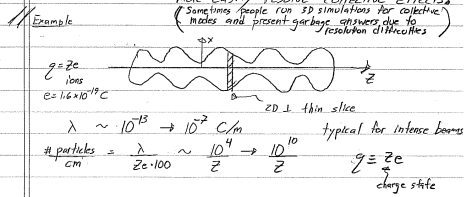 Example
(Sometimes people run 3D simulations for collective
modes and present garbage answers due to
resolution difficulties)
x
q = Ze
ions
e = 1.6×10⁻¹⁹ C
z
2D ⊥ thin slice
λ ~ 10⁻¹³ → 10⁻⁷ C/m typical for intense beams
# particles / cm = λ / Ze·100 ~ 10⁴ / Z → 10¹⁰ / Z q ≡ Ze
charge state